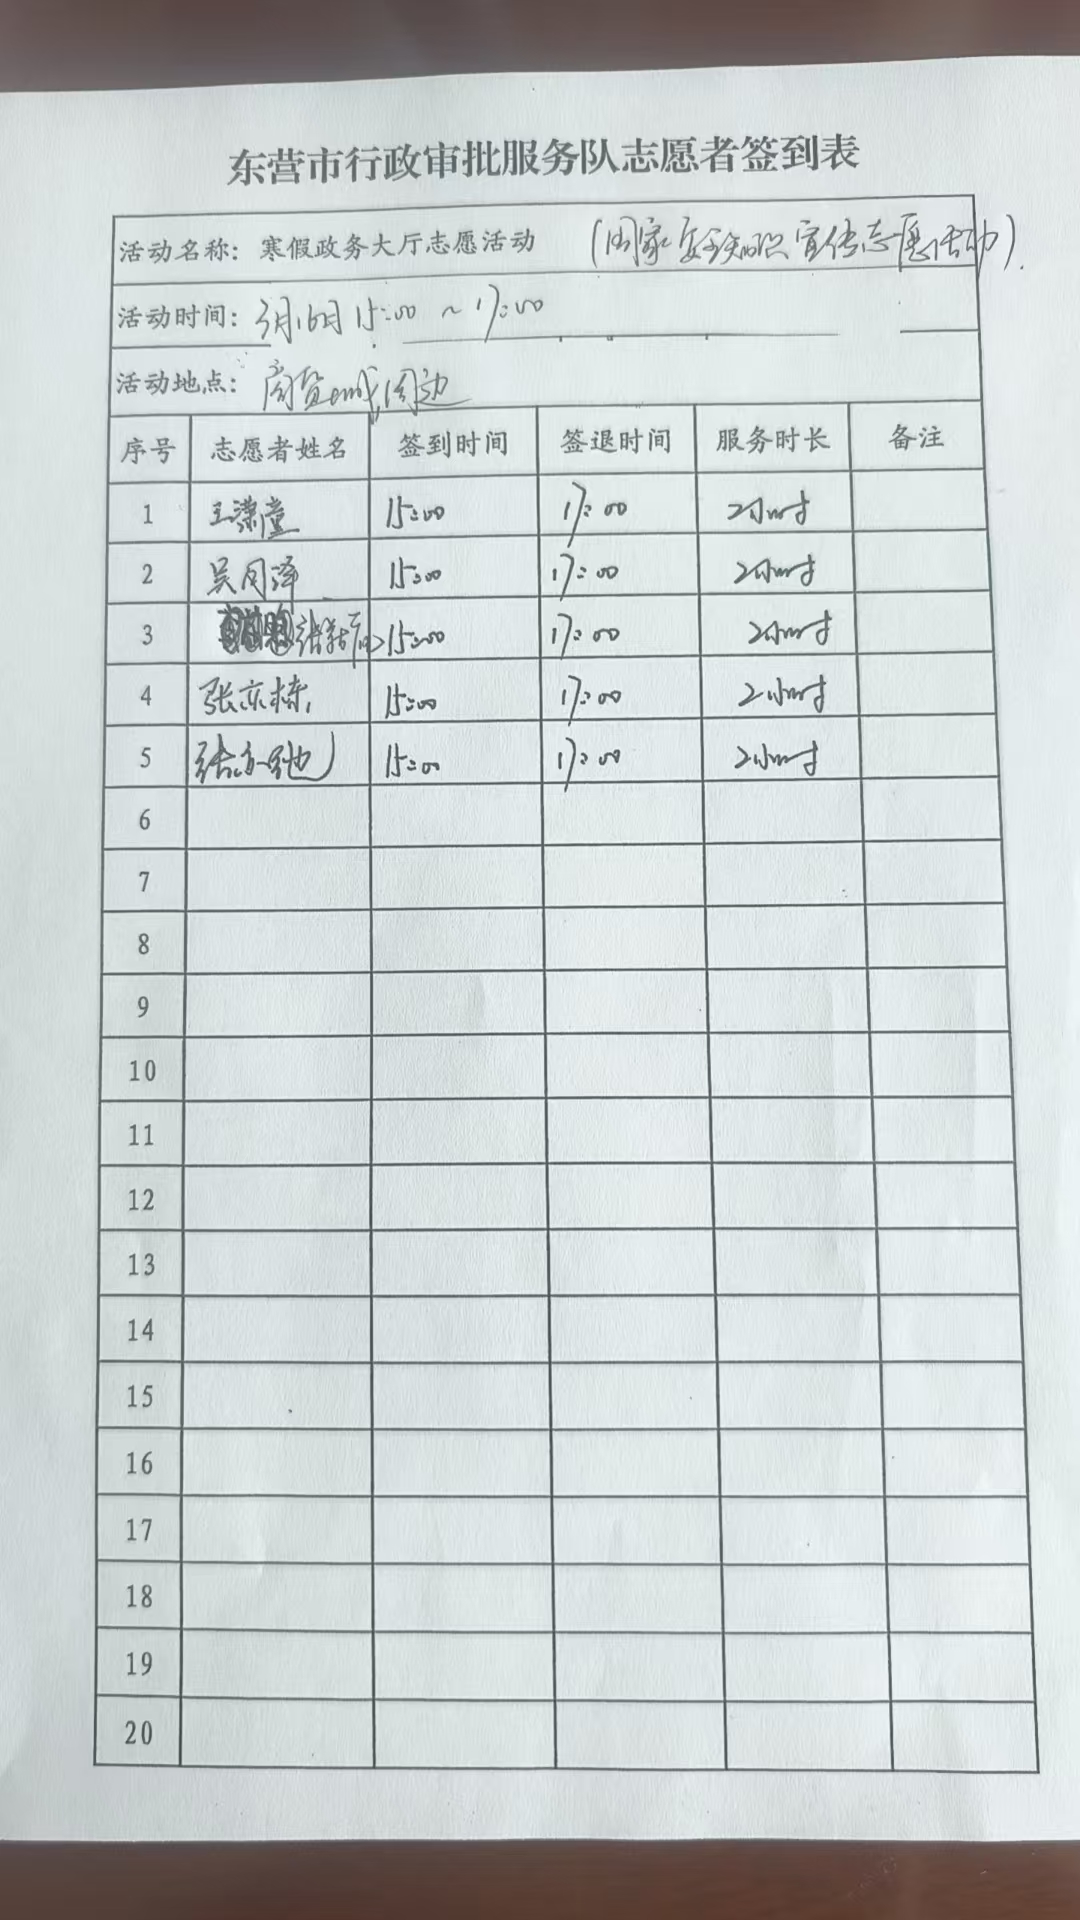 东营市行政审批服务队志愿者签到表
活动名称：寒假政务大厅志愿活动 （国家安全知识宣传志愿活动）.
活动时间：3月16日 15:00 ~ 17:00
活动地点：商贸城周边
序号 志愿者姓名 签到时间 签退时间 服务时长 备注
1 王潇童 15:00 17:00 2小时
2 吴同泽 15:00 17:00 2小时
3 张 15:00 17:00 2小时
4 张亦栋 15:00 17:00 2小时
5 张 15:00 17:00 2小时
6
7
8
9
10
11
12
13
14
15
16
17
18
19
20